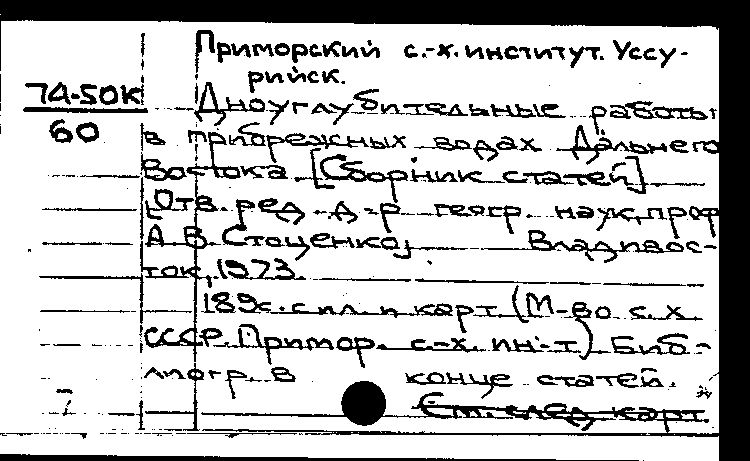 Приморский с.-х. институт. Уссу-
рийск.
74-50К
60
Дноуглубительные работы
в прибрежных водах Дальнего
Востока. [Сборник статей].
[Отв. ред. д-р геогр. наук, проф
А.В. Стоценко]. Владивос-
ток, 1973.
189с. с ил. и карт. (М-во с.х
СССР. Примор. с.-х. ин-т). Биб-
лиогр. в конце статей.
См. след. карт.
7